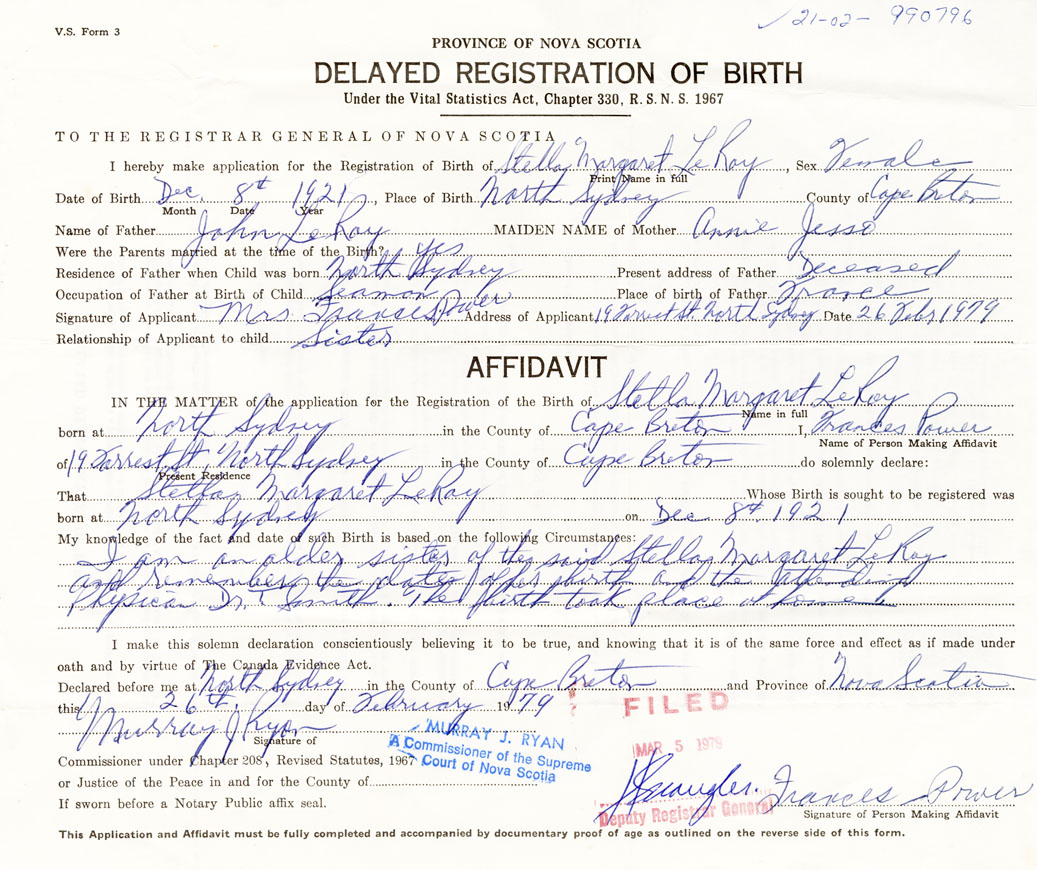 V.S. Form 3
21-02- 990796
PROVINCE OF NOVA SCOTIA
DELAYED REGISTRATION OF BIRTH
Under the Vital Statistics Act, Chapter 330, R.S.N.S. 1967
TO THE REGISTRAR GENERAL OF NOVA SCOTIA
I hereby make application for the Registration of Birth of Stella Margaret LeRoy, Sex Female
Print Name in full
Date of Birth Dec. 8th 1921, Place of Birth North Sydney County of Cape Breton
Month Date Year
Name of Father John LeRoy MAIDEN NAME of Mother Annie Jesso
Were the Parents married at the time of the Birth? yes
Residence of Father when Child was born North Sydney Present address of Father Deceased
Occupation of Father at Birth of Child Seaman Place of birth of Father France
Signature of Applicant Mrs Frances Power Address of Applicant 19 Forrest St. North Sydney Date 26 Feb, 1979
Relationship of Applicant to child Sister
AFFIDAVIT
IN THE MATTER of the application for the Registration of the Birth of Stella Margaret LeRoy
Name in full
born at North Sydney in the County of Cape Breton I, Frances Power
Name of Person Making Affidavit
of 19 Forrest St, North Sydney in the County of Cape Breton do solemnly declare:
Present Residence
That Stella Margaret LeRoy Whose Birth is sought to be registered was
born at North Sydney on Dec. 8th 1921
My knowledge of the fact and date of such Birth is based on the following Circumstances:
I am an older sister of the said Stella Margaret LeRoy
and remembers the date of her birth and the attending
Physician Dr. Smith. The birth took place at home
I make this solemn declaration conscientiously believing it to be true, and knowing that it is of the same force and effect as if made under
oath and by virtue of The Canada Evidence Act.
Declared before me at North Sydney in the County of Cape Breton and Province of Nova Scotia
this 26th. day of February 1979
FILED
Murray J Ryan
Signature of
MURRAY J. RYAN
A Commissioner of the Supreme
Court of Nova Scotia
MAR 5 1979
Commissioner under Chapter 208, Revised Statutes, 1967
or Justice of the Peace in and for the County of
If sworn before a Notary Public affix seal.
Deputy Registrar General
Frances Power
Signature of Person Making Affidavit
This Application and Affidavit must be fully completed and accompanied by documentary proof of age as outlined on the reverse side of this form.